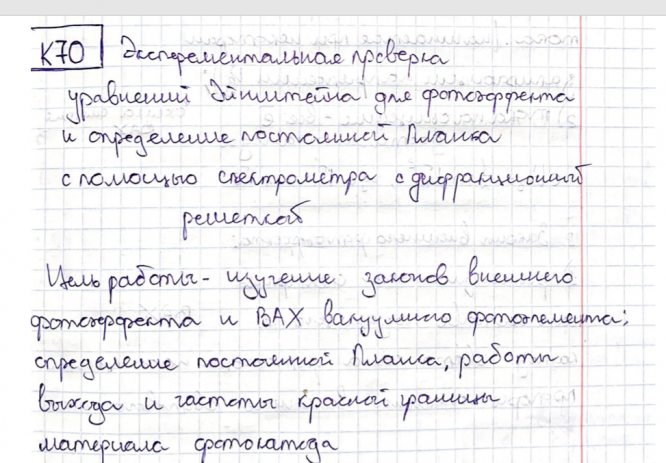 К70 Эксперементальная проверка
уравнений Эйнштейна для фотоэффекта
и определение постоянной Планка
с помощью спектрометра с дифракционной
решеткой
Цель работы - изучение законов внешнего
фотоэффекта и ВАХ вакуумного фотоэлемента;
определение постоянной Планка, работы
выхода и частоты красной границы
материала фотокатода